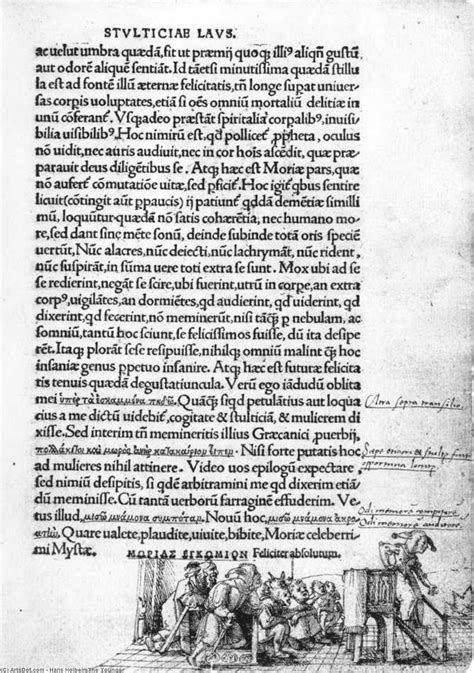 STVLTICIAE LAVS.
ac uelut umbra quædã, fit ut præmij quoq; illiꝰ aliqñ gustũ
aut odorẽ aliquẽ sentiãt. Id tãetsi minutissima quædã stillu
la est ad fontẽ illũ æternæ felicitatis, tñ longe supat uniuer
sas corpis uoluptates, etiã si oẽs omniũ mortaliũ delitiæ in
unũ cõferant᷑. Vsq;adeo præstãt spiritalia corpalibꝰ, inuisi
bilia uisibilibꝰ. Hoc nimirũ est, qd pollicet᷑ ꝓpheta, oculus
nõ uidit, nec auris audiuit, nec in cor hoĩs ascẽdit, quæ præ
parauit deus diligẽtibus se. Atq; hæc est Moriæ pars, quæ
nõ aufert᷑ cõmutatiõe uitæ, sed ꝑficit᷑. Hoc igit᷑ qbus sentire
licuit (cõtingit aũt ꝑpaucis) ij patiunt᷑ qddã demẽtiæ simillí
mũ, loquũtur quædã nõ satis cohærẽtia, nec humano mo
re, sed dant sinc mẽte sonũ, deinde subinde totã oris speciẽ
uertũt, Nũc alacres, nũc deiecti, nũc lachrymãt, nũc rident,
nũc suspirãt, in sũma uere toti extra se sunt. Mox ubi ad se
se redierint, negãt se scire, ubi fuerint, utrũ in corpe, an extra
corpꝰ, uigilãtes, an dormiẽtes, qd audierint, qd uiderint, qd
dixerint, qd fecerint, nõ meminerũt, nisi tãq̃; ꝑ nebulam, ac
somniũ, tantũ hoc sciunt, se felicissimos fuisse, dũ ita desipe
rẽt. Itaq; plorãt sese resipuisse, nihilq; omniũ malint q̃; hoc
insaniæ genus ꝑpetuo insanire. Atq; hæc est futuræ felicita
tis tenuis quædã degustatiuncula. Verũ ego iãdudũ oblita
mei ὑπὲρ τὰ ἐσκαμμένα πηδῶ. Quãq̃; siqd petulãtius aut loqua
cius a me dictũ uidebit᷑, cogitate & stulticiã, & mulierem di
xisse. Sed interim tñ memineritis illius Græcanici ꝓuerbij,
πολλάκι τοι καὶ μωρὸς ἀνὴρ κατακαίριον εἶπεν. Nisi forte putatis hoc
ad mulieres nihil attinere. Video uos epilogũ expectare
sed nimiũ desipitis, si qdẽ arbitramini me qd dixerim etiã
dũ meminisse. Cũ tantã uerborũ farraginẽ effuderim. Ve-
tus illud, μισῶ μνάμονα συμπόταν. Nouũ hoc, μισῶ μνάμονα ἀκρο
ατήν. Quare ualete, plaudite, uiuite, bibite, Moriæ celeberri
mi Mystæ.
ΜΩΡΙΑΣ ΕΓΚΩΜΙΟΝ Feliciter absolutum.
(C) ArtsDot.com - Hans Holbein The Younger